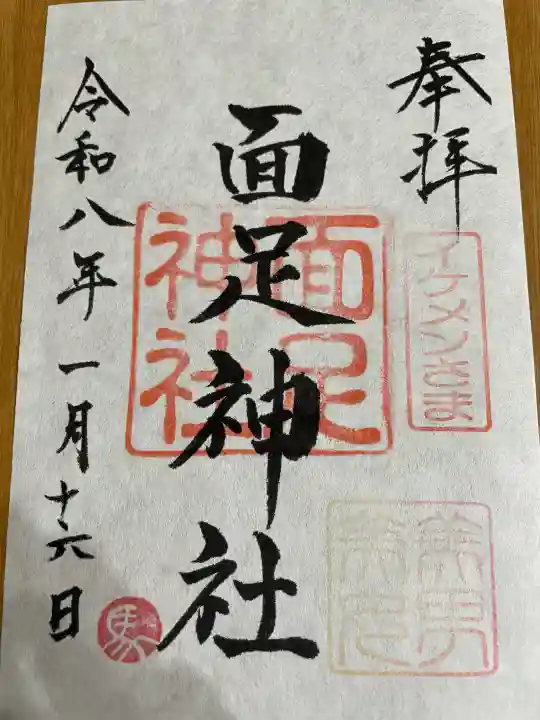 奉拝
イケメンさま
面足神社
面足
神社
令和八年一月十六日